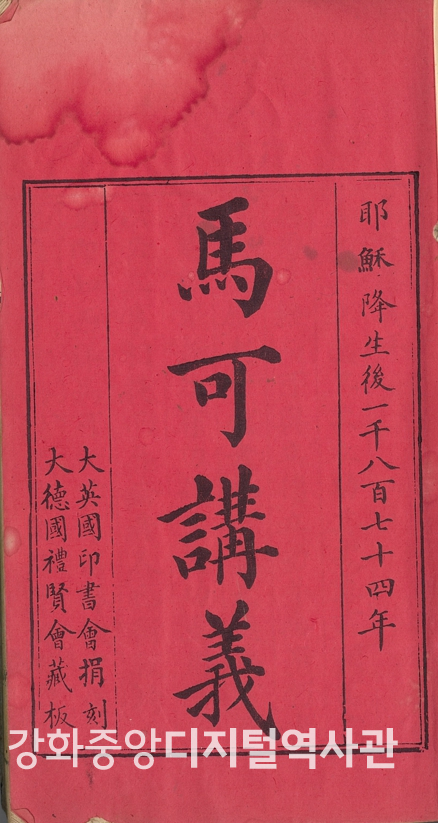 耶穌降生後一千八百七十四年
馬可講義
大英國印書會捐刻
大德國禮賢會藏板
강화중앙디지털역사관